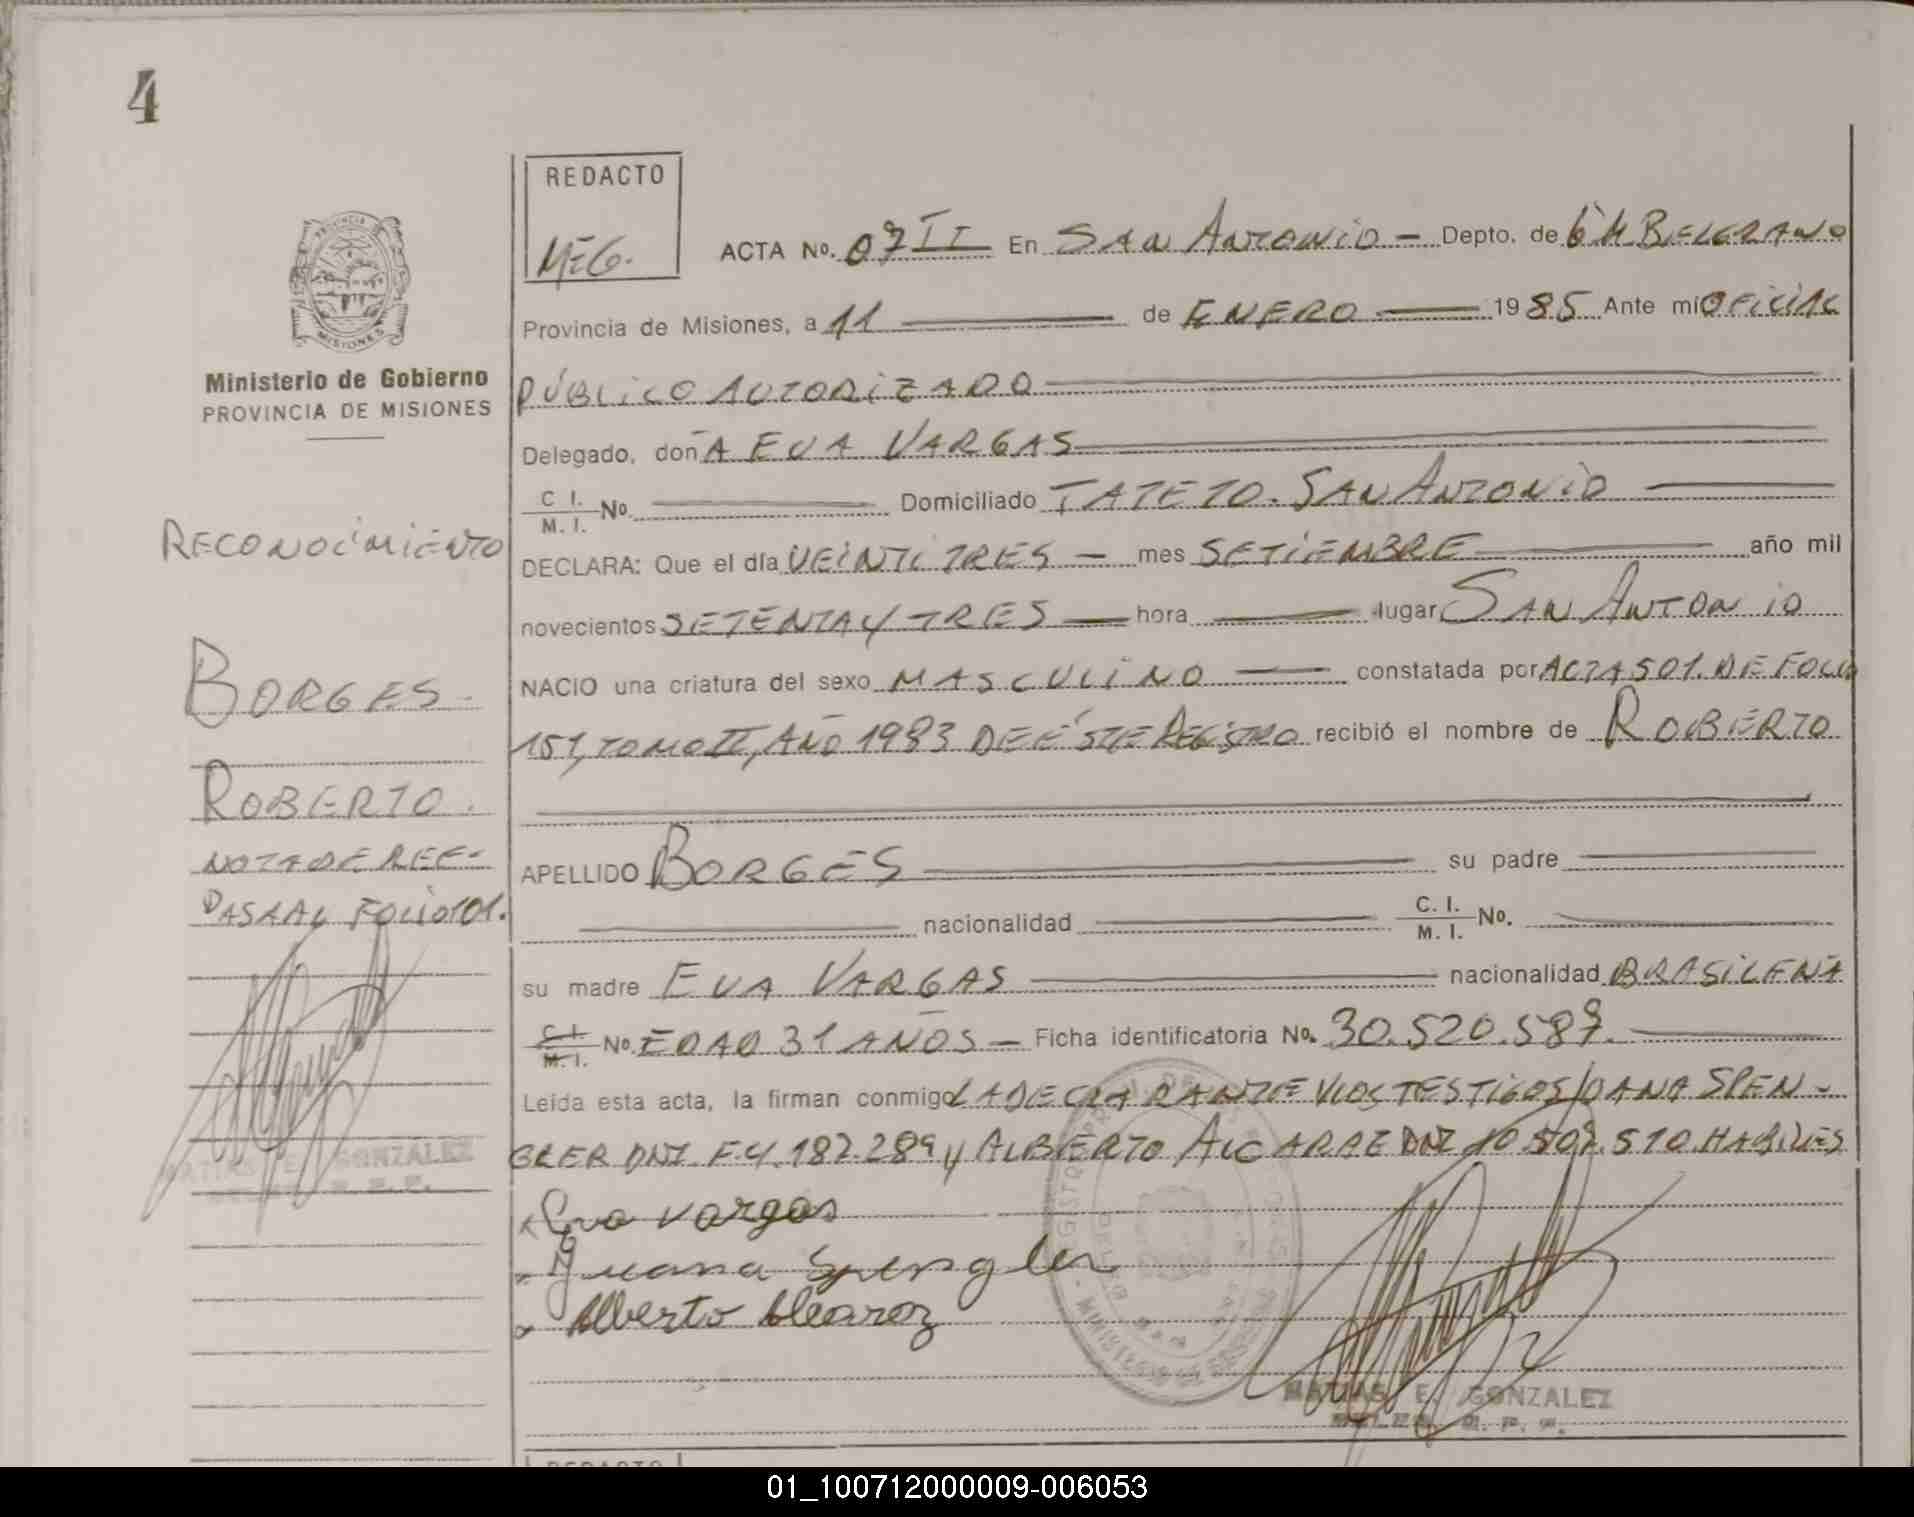 4
REDACTO
M.E.G.
ACTA No. 07 II En SAN ANTONIO - Depto. de G'M BELGRANO
Provincia de Misiones, a 11 de ENERO 1985 Ante mí OFICIAL
PÚBLICO AUTORIZADO
Delegado, doñA EVA VARGAS
C. I.
M. I. No. Domiciliado TATETO. SAN ANTONIO
DECLARA: Que el día VEINTITRES - mes SETIEMBRE año mil
novecientos SETENTA Y TRES hora lugar SAN ANTONIO
NACIO una criatura del sexo MASCULINO constatada por ACTA 501. DE FOLIO
151, TOMO II, AÑO 1983 DE ÉSTE REGISTRO recibió el nombre de ROBERTO
APELLIDO BORGES su padre
nacionalidad C. I.
M. I. No.
su madre EVA VARGAS nacionalidad BRASILEÑA
C. I.
M. I. No. EDAD 31 AÑOS - Ficha identificatoria No. 30.520.587.
Leída esta acta, la firman conmigo LA DECLARANTE Y LOS TESTIGOS JUANA SPEN-
GLER DNI. F.4.187.289 y ALBERTO ALCARAZ DNI 10.507.510. HABILES
Eva Vargas
Juana Spengler
Alberto Alcaraz
MATIAS E. GONZALEZ
PROVINCIA DE
MISIONES
Ministerio de Gobierno
PROVINCIA DE MISIONES
RECONOCIMIENTO
BORGES.
ROBERTO.
NOTA DE REF-
PASA AL FOLIO 101.
MATIAS E. GONZALEZ
REDACTO
01_100712000009-006053